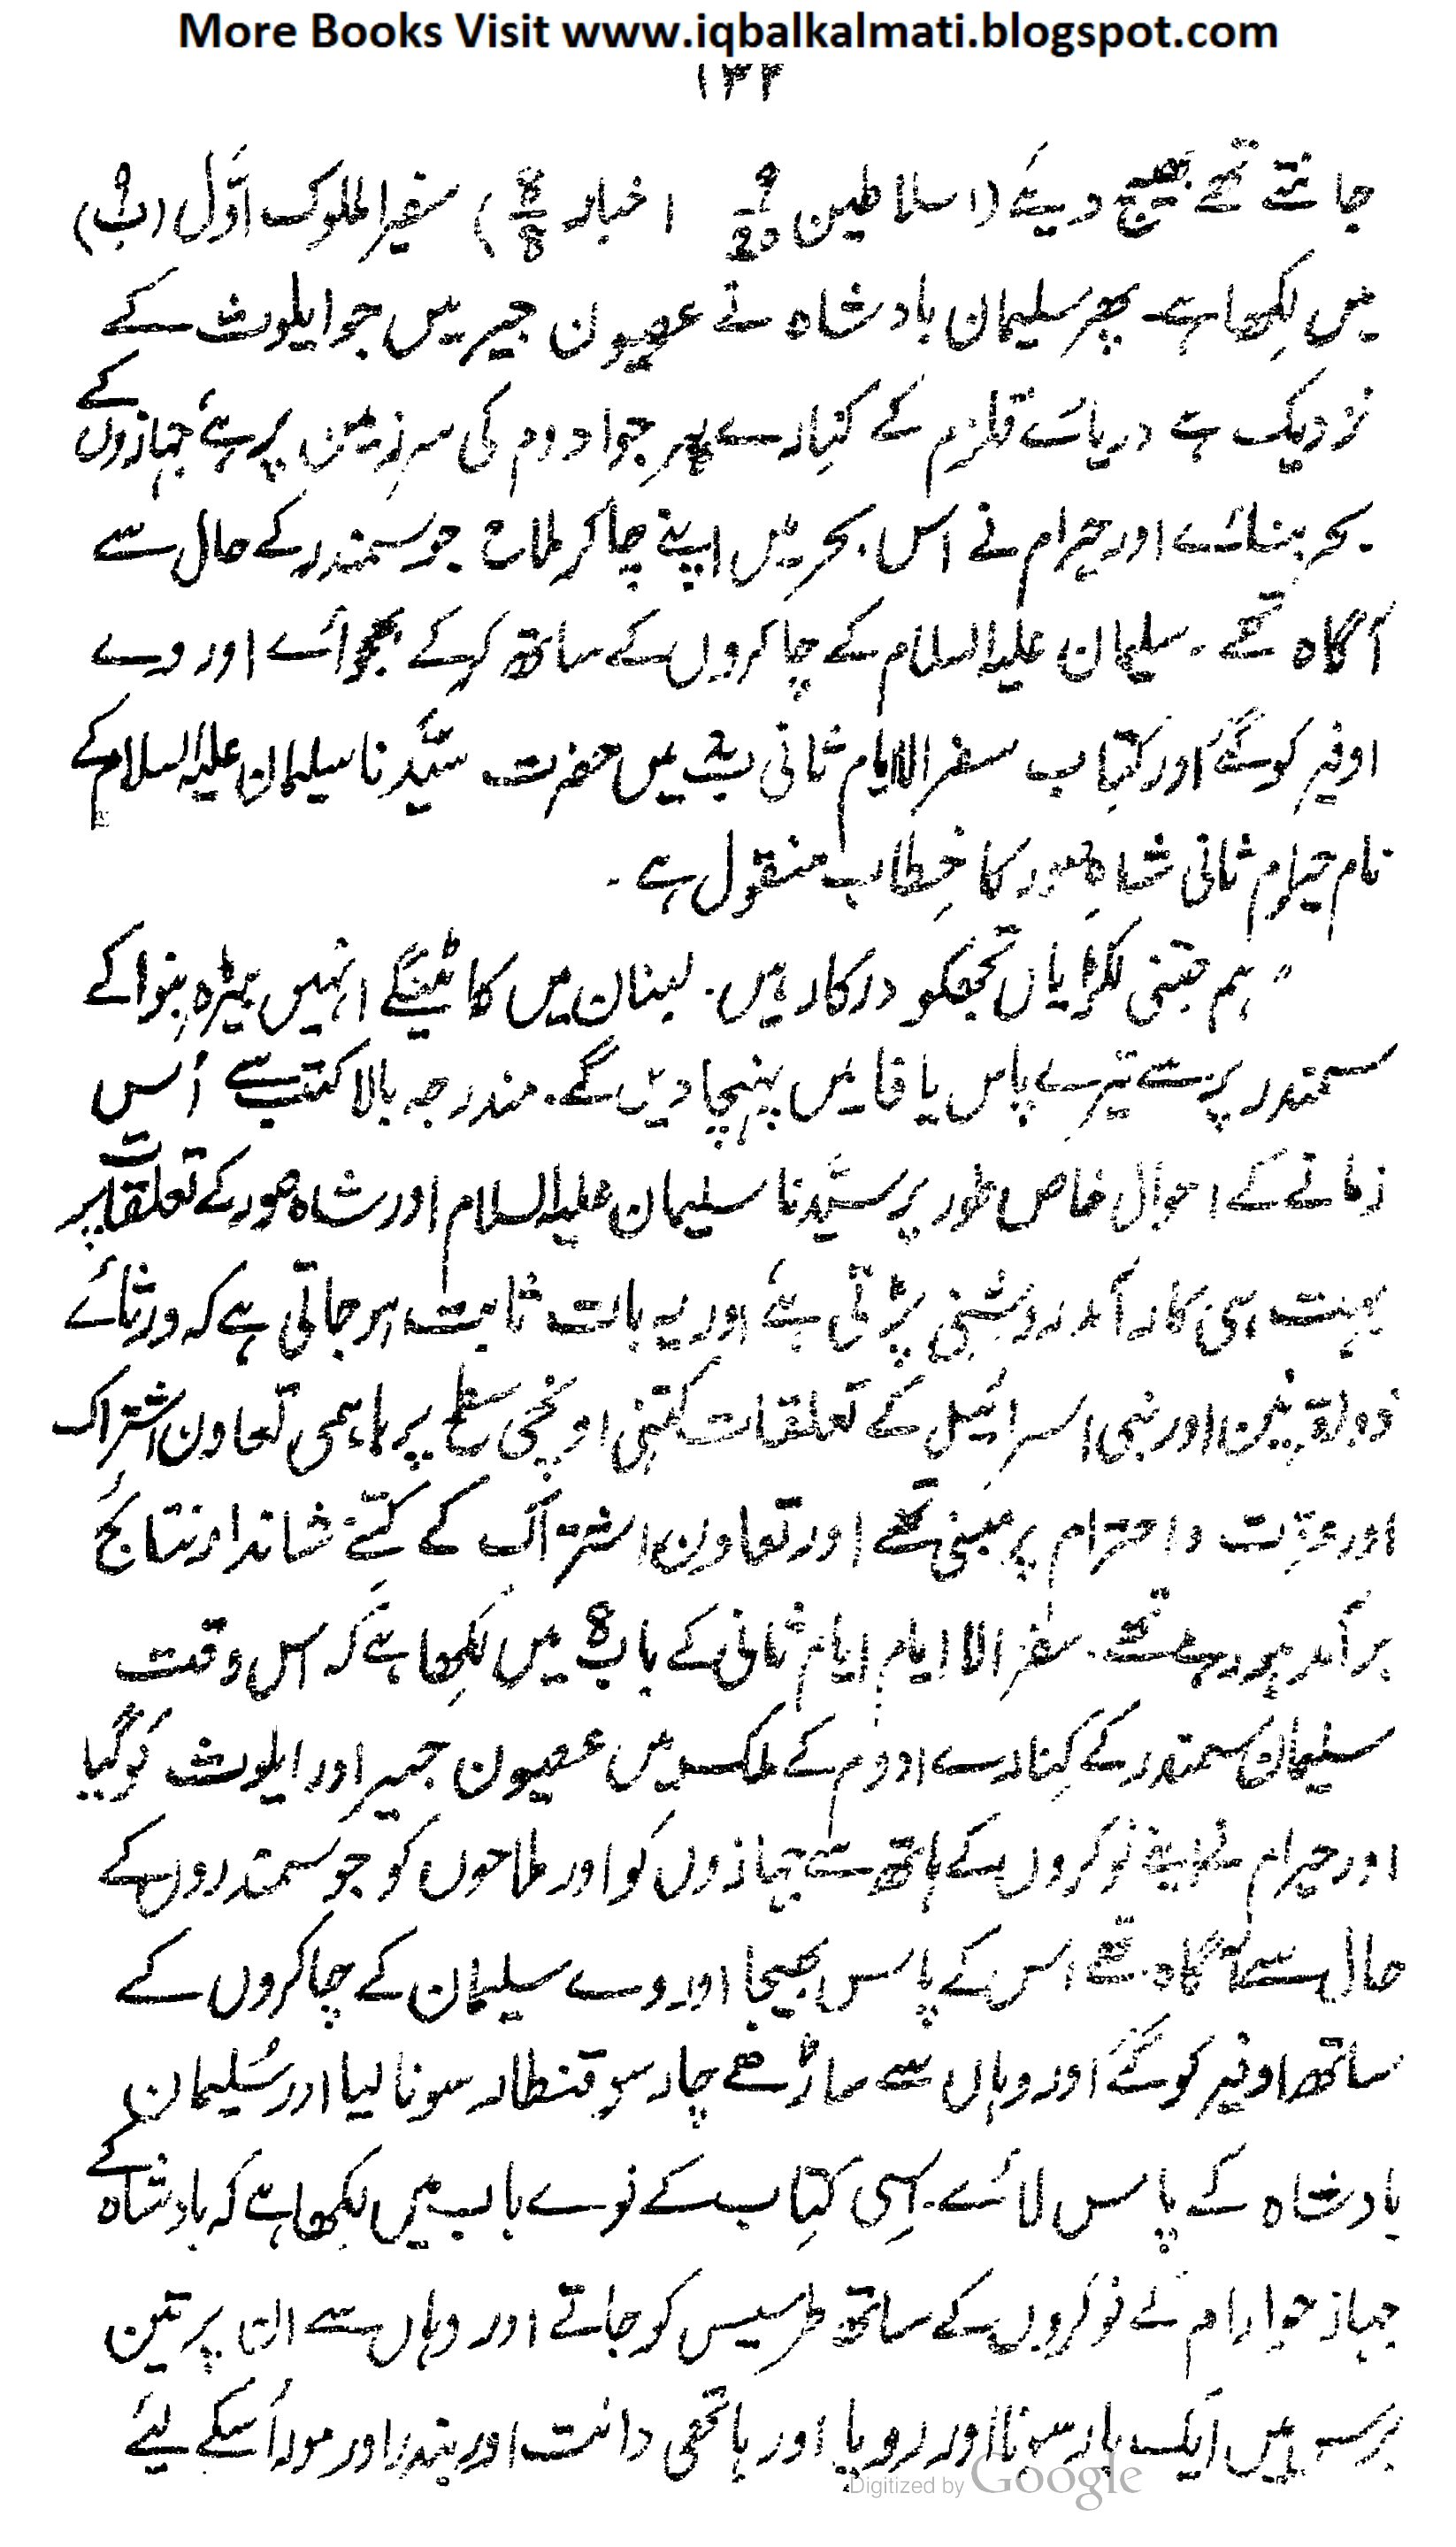 More Books Visit www.iqbalkalmati.blogspot.com
۱۳۲
جانتے تھے بھیج دیئے (اسلاطین ۹/۲۶ اخبار ۸/۸) سفیرالملوک اوّل (ب۹)
میں لکھا ہے۔ پھر سلیمان بادشاہ نے عصیون جیر میں جو ایلوث کے
نزدیک ہے دریائے قلزم کے کنارے پر جو ادوم کی سرزمین پر ہے جہازوں کے
بحر بنائے اور حیرام نے اس بحر میں اپنے چاکر ملاح جو سمندر کے حال سے
آگاہ تھے۔ سلیمان علیہ السلام کے چاکروں کے ساتھ کرکے بھجوائے اور وے
اوفیر کو گئے اور کتاب سفر الایام ثانی ب۲ میں حضرت سیّدنا سلیمان علیہ السلام کے
نام حیرام ثانی شاہ صور کا خطاب منقول ہے۔
"ہم جتنی لکڑیاں تجھکو درکار ہیں۔ لبنان میں کاٹینگے انہیں بیڑہ بنوا کے
سمندر پر سے تیرے پاس یافا میں پہنچا دیں گے۔ مندرجہ بالا کتب سے اُس
زمانے کے احوال خاص طور پر سیّدنا سلیمان علیہ السلام اور شاہ صور کے تعلقات پر
بہت ہی کارآمد روشنی پڑتی ہے اور یہ بات ثابت ہو جاتی ہے کہ ورثائے
ذوالقرنین اور بنی اسرائیل کے تعلقات کتنی اونچی سطح پر باہمی تعاون اشتراک
اور عزت و احترام پر مبنی تھے اور تعاون اشتراک کے کتنے شاندار نتائج
برآمد ہو رہے تھے۔ سفر الا ایام ایام ثانی کے باب ۸ میں لکھا ہے کہ اس وقت
سلیمان سمندر کے کنارے ادوم کے ملک میں عصیون جیر اور ایلوث کو گیا
اور حیرام نے اپنے نوکروں کے ہاتھ سے جہازوں کو اور ملاحوں کو جو سمندروں کے
حال سے آگاہ تھے اس کے پاس بھیجا اور وے سلیمان کے چاکروں کے
ساتھ اوفیر کو گئے اور وہاں سے ساڑھے چار سو قنطار سونا لیا اور سُلیمان
بادشاہ کے پاس لائے۔ اسی کتاب کے نوے باب میں لکھا ہے کہ بادشاہ کے
جہاز حوارام کے نوکروں کے ساتھ طرسیس کو جاتے اور وہاں سے ان پر تین
برس میں ایک بار سونا اور روپا اور ہاتھی دانت اور بندر اور مور اُسکے لیئے
Digitized by Google